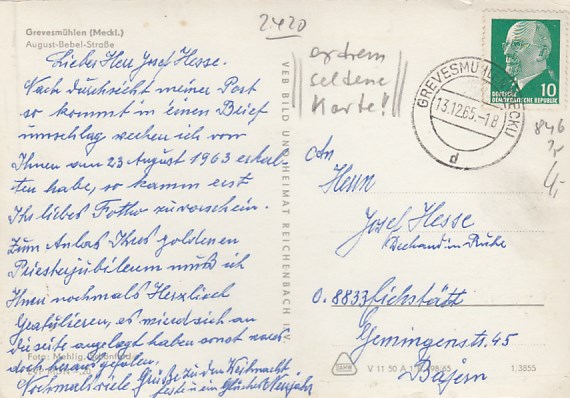 Grevesmühlen (Meckl.)
August-Bebel-Straße
Lieber Herr Josef Hesse.
Nach durchsicht meiner Post
so kommt in einen Brief
umschlag welchen ich von
Ihnen vom 23 August 1963 erhal-
ten habe, so kamm erst
Ihr liebes Fotho zu vorschein.
Zum Anlas Ihres goldenen
Priesterjubileum muß ich
Ihnen nochmals Herzlich
Gratulieren, es wird sich an
die seite angelegt haben sonst
doch herausgefallen.
Foto: Mohlig,
Nochmals viele Grüße zu den Weihnacht
feste u ein Glückliches Neujahr
VEB BILD UND HEIMAT REICHENBACH i. V.
2420
extrem
seldene
Karte!!
GREVESMÜHLEN (MECKL)
13.12.65.-18
d
10
DEUTSCHE
DEMOKRATISCHE REPUBLIK
846
4,-
An
Herrn
Josef Hesse
Dechand in Ruhe
8833 Eichstätt
Gemingenstr. 45
Bayern
V 11 50 A 1
1.3855